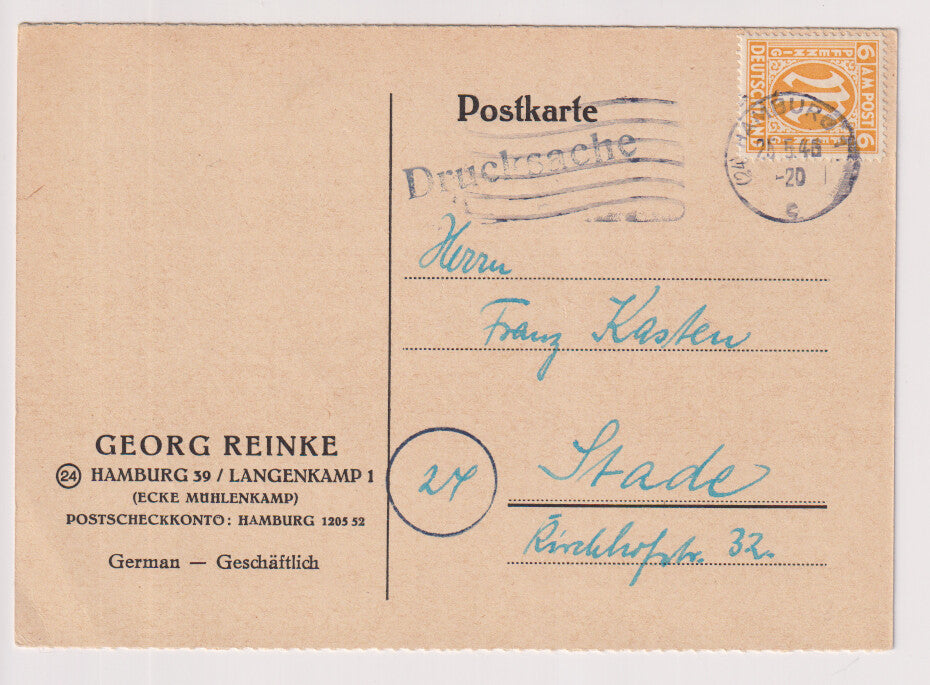 Postkarte
Drucksache
6 AM POST 6
PFENNIG
DEUTSCHLAND
(24) HAMBURG 1
-20
c
Herrn
Franz Kasten
24
Stade
Kirchhofstr. 32.
GEORG REINKE
(24) HAMBURG 39 / LANGENKAMP 1
(ECKE MÜHLENKAMP)
POSTSCHECKKONTO: HAMBURG 1205 52
German — Geschäftlich